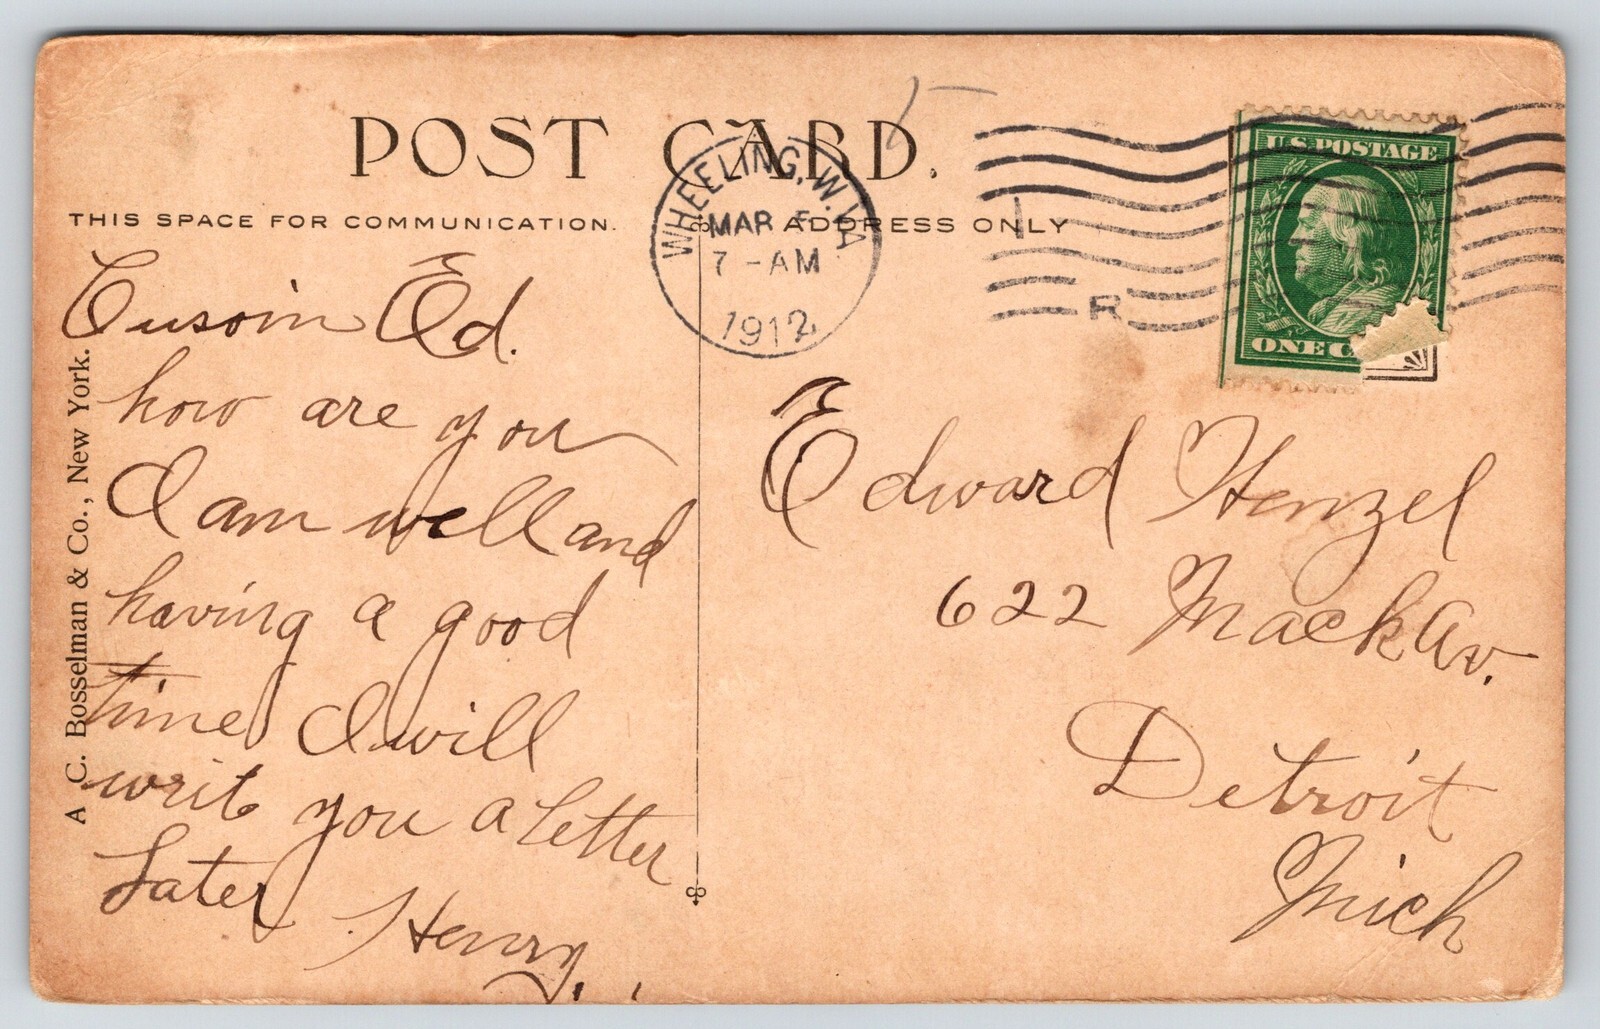 POST CARD.
THIS SPACE FOR COMMUNICATION.
ADDRESS ONLY
WHEELING, W. VA
MAR 5
7 - AM
1912
R
U.S. POSTAGE
ONE C
Cusoin Ed.
how are you
I am well and
having a good
time I will
writ you a letter
Later Henry.
Edward Henzel
622 Mack Av.
Detroit
Mich
A. C. Bosselman & Co., New York.